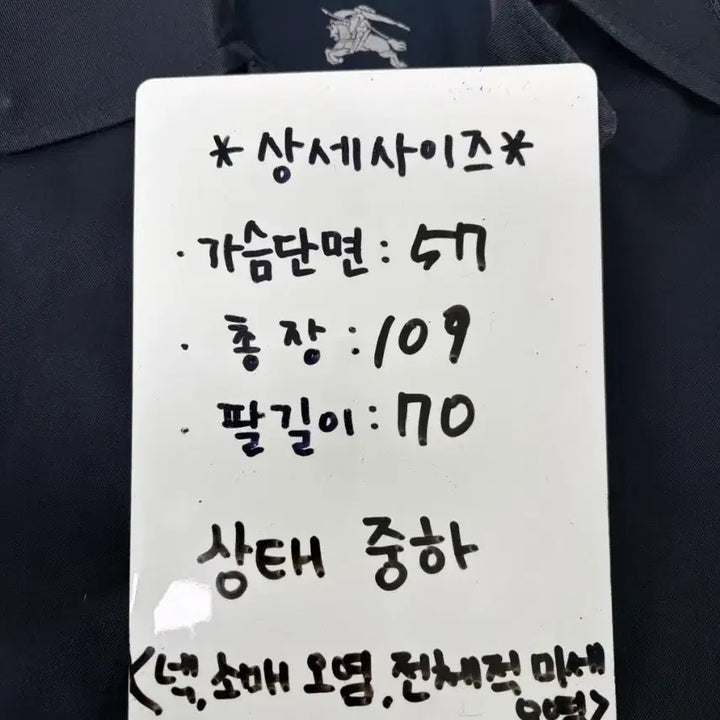 *상세사이즈*
· 가슴단면 : 57
· 총장 : 109
· 팔길이 : 70
상태 중하
<넥,소매 오염,전체적 미세
오염>